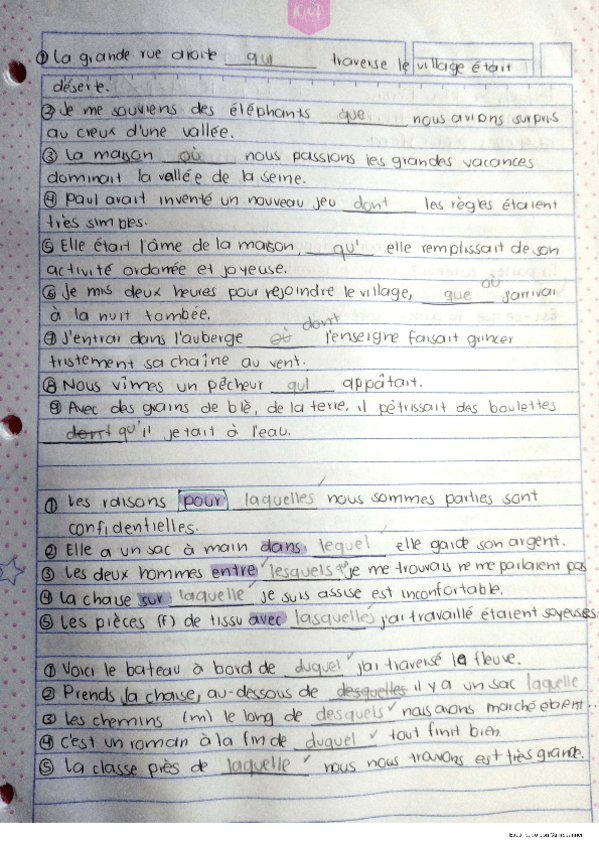 ① La grande rue droite qui traverse le village était
déserte.
② Je me souviens des éléphants que nous avions surpris
au creux d'une vallée.
③ La maison où nous passions les grandes vacances
dominait la vallée de la seine.
④ Paul avait inventé un nouveau jeu dont les règles étaient
très simples.
⑤ Elle était l'âme de la maison, qu' elle remplissait de son
activité ordonée et joyeuse.
où
⑥ Je mis deux heures pour rejoindre le village, que j'arrivai
à la nuit tombée.
dont
⑦ J'entrai dans l'auberge où l'enseigne faisait grincer
tristement sa chaîne au vent.
⑧ Nous vîmes un pêcheur qui appâtait.
⑨ Avec des grains de blè, de la terre, il pétrissait des boulettes
dont qu'il jetait à l'eau.
① Les raisons pour laquelles nous sommes parties sont
confidentielles.
② Elle a un sac à main dans lequel elle garde son argent.
③ Les deux hommes entre lesquels je me trouvais ne me parlaient pas
④ La chaise sur laquelle je suis assise est inconfortable.
⑤ Les pièces (f) de tissu avec lasquelles j'ai travaillé étaient soyeuses
① Voici le bateau à bord de duquel j'ai traversé le fleuve.
② Prends la chaise, au-dessous de desquelles il y a un sac laquelle
③ Les chemins (m) le long de desquels nous avons marché étaient..
④ C'est un roman à la fin de duquel tout finit bien.
⑤ La classe près de laquelle nous nous trouvons est très grande.